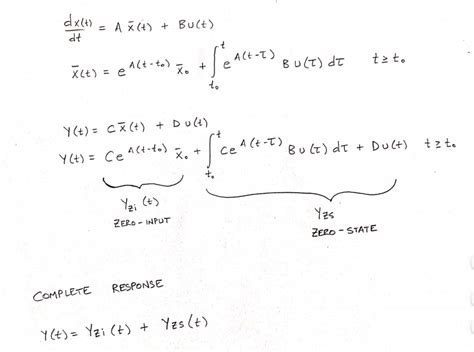 dx(t)/dt = A x̄(t) + Bu(t)
x̄(t) = e^{A(t-t₀)} x̄₀ + ∫_{t₀}^{t} e^{A(t-τ)} Bu(τ) dτ t≥t₀
Y(t) = Cx̄(t) + Du(t)
Y(t) = Ce^{A(t-t₀)} x̄₀ + ∫_{t₀}^{t} Ce^{A(t-τ)} Bu(τ) dτ + Du(t) t≥t₀
Yzi (t) Yzs
ZERO-INPUT ZERO-STATE
COMPLETE RESPONSE
Y(t) = Yzi(t) + Yzs(t)